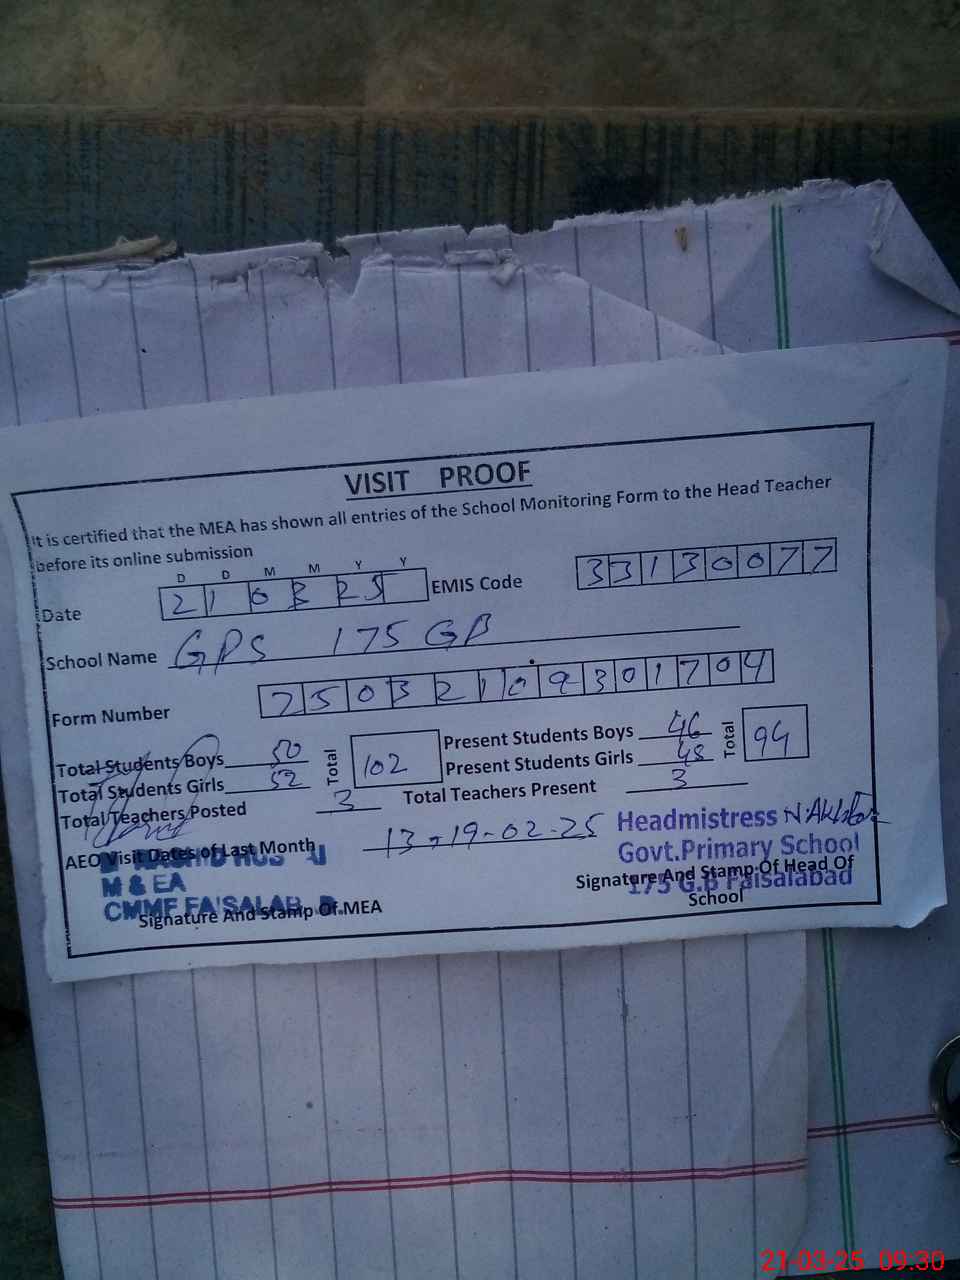 VISIT PROOF
It is certified that the MEA has shown all entries of the School Monitoring Form to the Head Teacher
before its online submission
D D M M Y Y
Date 210325 EMIS Code 33130077
School Name GPS 175 GB
Form Number 25032109301704
Total Students Boys 50 Total 102 Present Students Boys 46 Total 94
Total Students Girls 52 Present Students Girls 48
Total Teachers Posted 3 Total Teachers Present 3
AEO Visit Dates of Last Month 13, 19-02-25
Headmistress N. Akhtar
Govt.Primary School
175 G.B Faisalabad
M & EA
CMMF FAISALAB
Signature And Stamp Of MEA
Signature And Stamp Of Head Of
School
21-03-25 09:30